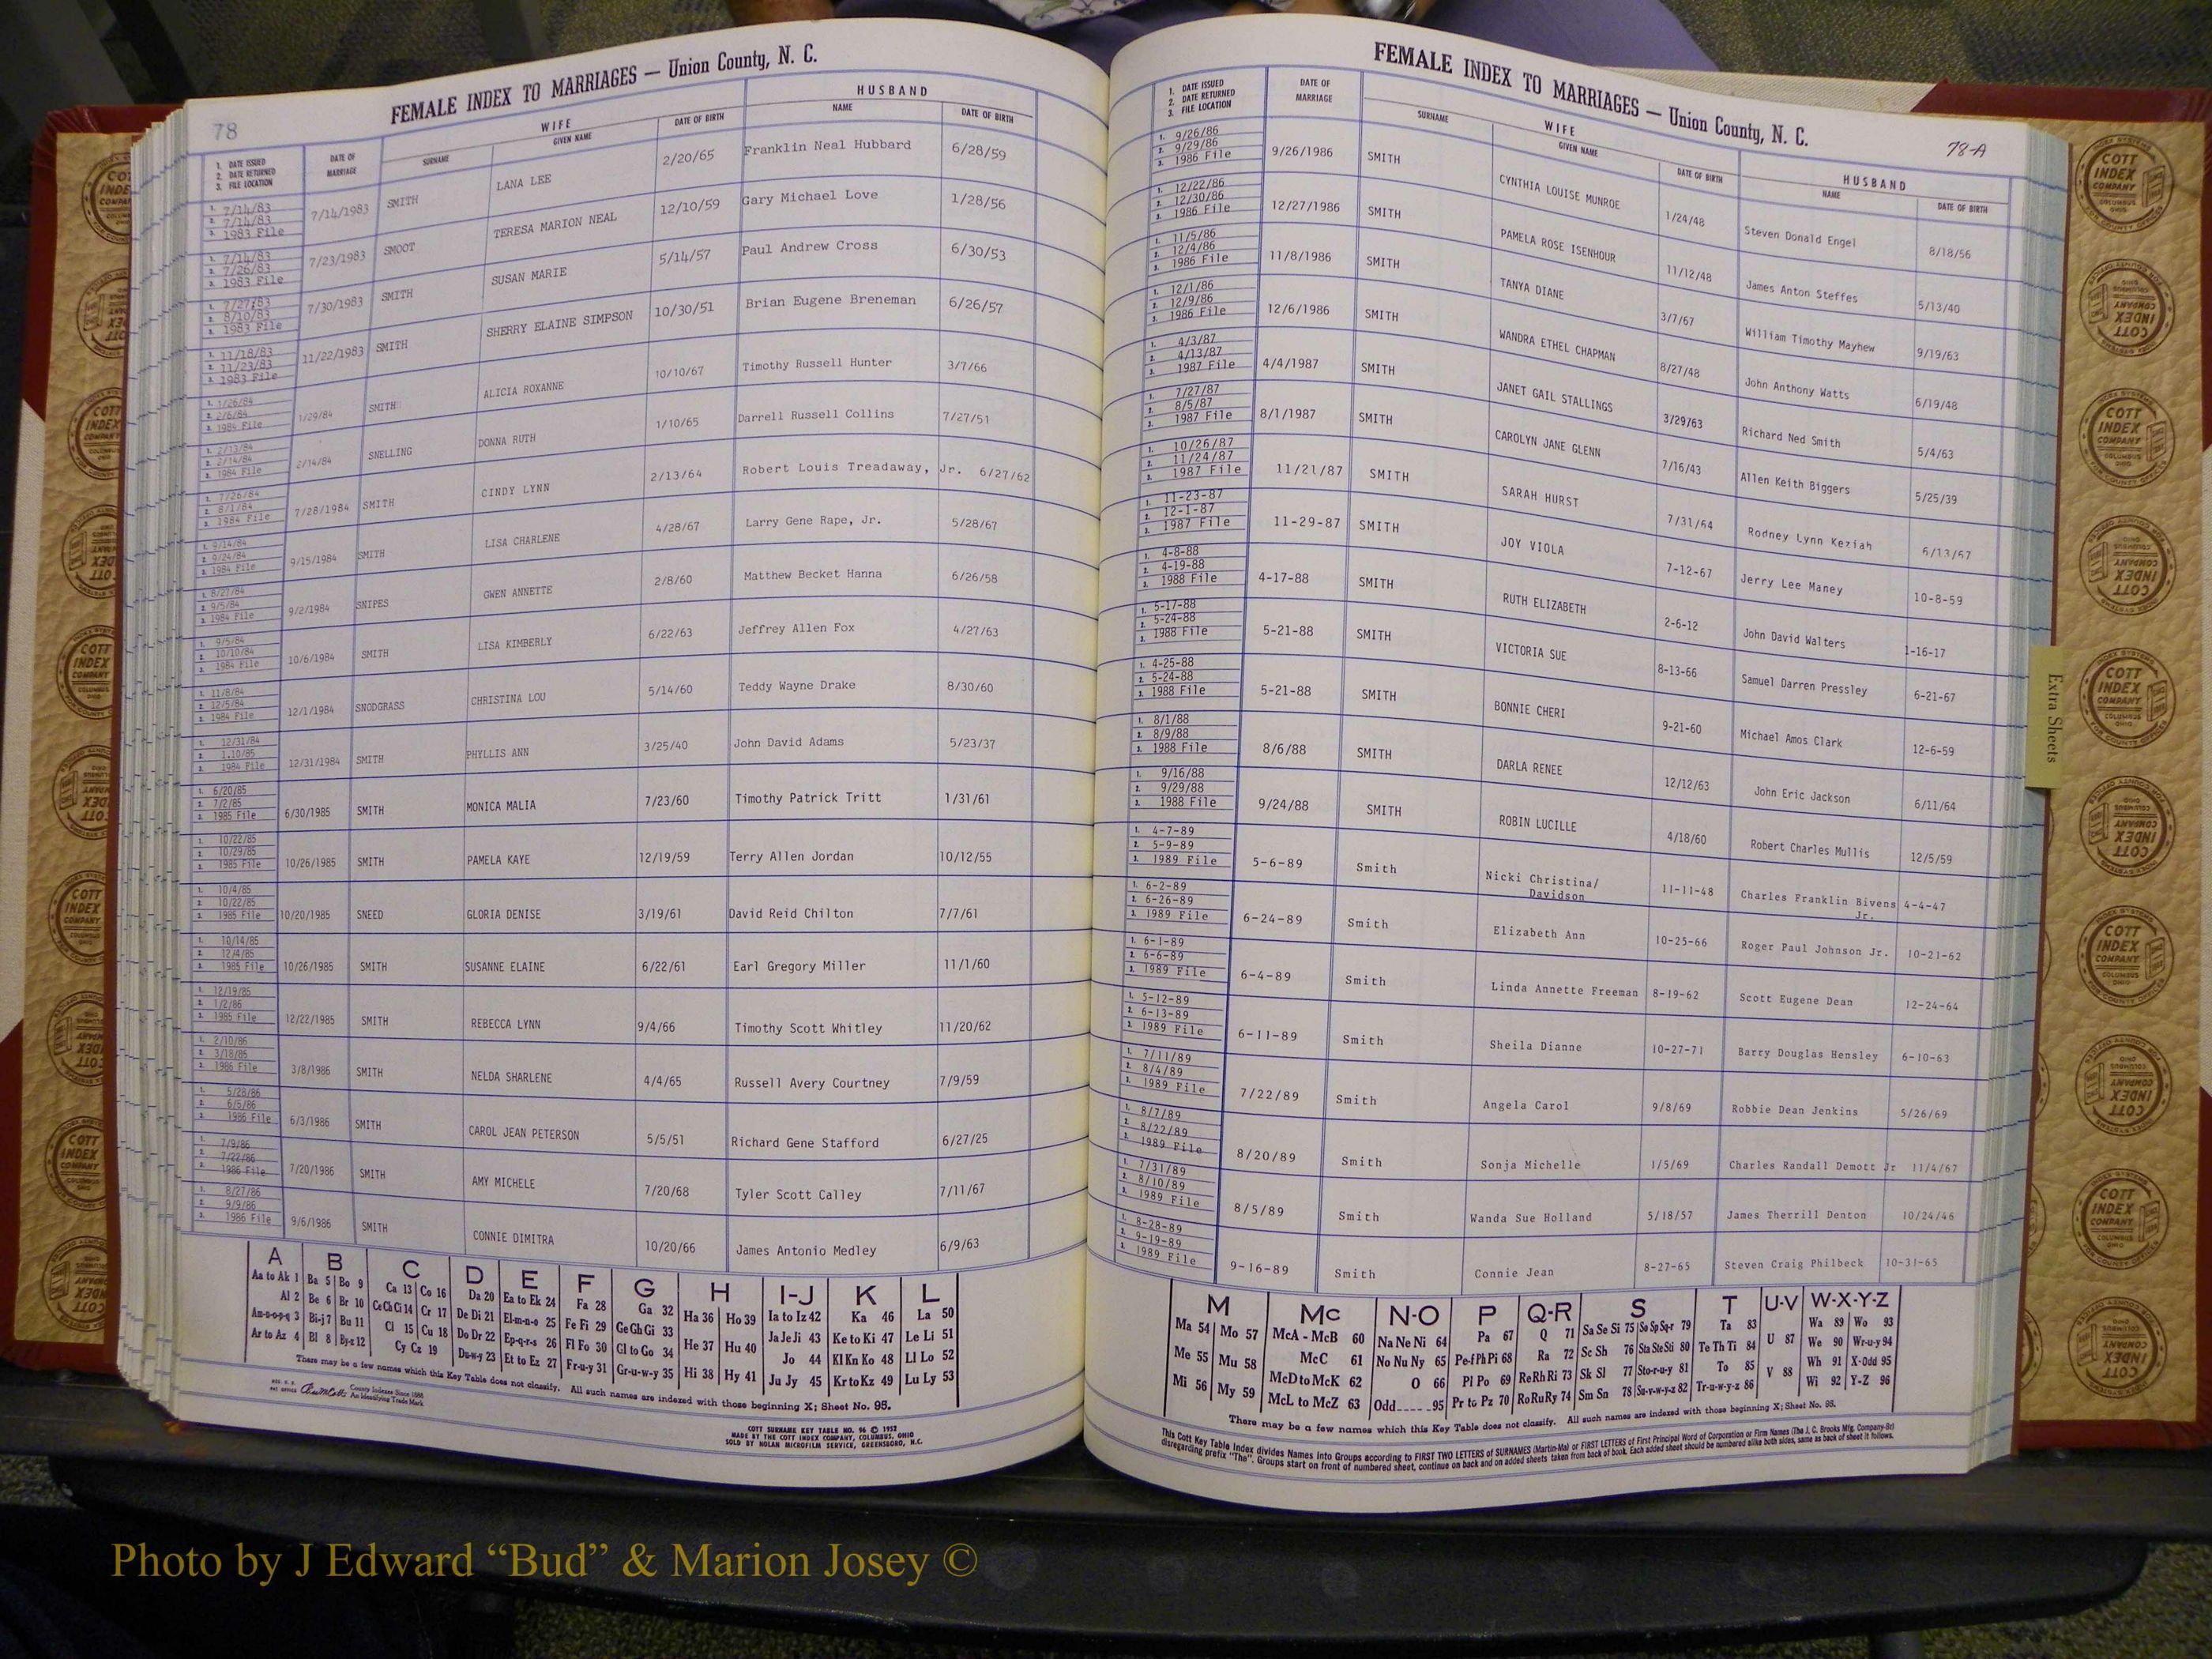 78
FEMALE INDEX TO MARRIAGES — Union County, N. C.
WIFE HUSBAND
1. DATE ISSUED 2. DATE RETURNED 3. FILE LOCATION DATE OF MARRIAGE SURNAME GIVEN NAME DATE OF BIRTH NAME DATE OF BIRTH
1. 7/14/83 2. 7/14/83 3. 1983 File 7/14/1983 SMITH LANA LEE 2/20/65 Franklin Neal Hubbard 6/28/59
1. 7/14/83 2. 7/26/83 3. 1983 File 7/23/1983 SMOOT TERESA MARION NEAL 12/10/59 Gary Michael Love 1/28/56
1. 7/27/83 2. 8/10/83 3. 1983 File 7/30/1983 SMITH SUSAN MARIE 5/14/57 Paul Andrew Cross 6/30/53
1. 11/18/83 2. 11/23/83 3. 1983 File 11/22/1983 SMITH SHERRY ELAINE SIMPSON 10/30/51 Brian Eugene Breneman 6/26/57
1. 1/26/84 2. 2/6/84 3. 1984 File 1/29/84 SMITH ALICIA ROXANNE 10/10/67 Timothy Russell Hunter 3/7/66
1. 2/13/84 2. 2/14/84 3. 1984 File 2/14/84 SNELLING DONNA RUTH 1/10/65 Darrell Russell Collins 7/27/51
1. 7/26/84 2. 8/1/84 3. 1984 File 7/28/1984 SMITH CINDY LYNN 2/13/64 Robert Louis Treadaway, Jr. 6/27/62
1. 9/14/84 2. 9/24/84 3. 1984 File 9/15/1984 SMITH LISA CHARLENE 4/28/67 Larry Gene Rape, Jr. 5/28/67
1. 8/27/84 2. 9/5/84 3. 1984 File 9/2/1984 SNIPES GWEN ANNETTE 2/8/60 Matthew Becket Hanna 6/26/58
1. 9/5/84 2. 10/10/84 3. 1984 File 10/6/1984 SMITH LISA KIMBERLY 6/22/63 Jeffrey Allen Fox 4/27/63
1. 11/8/84 2. 12/5/84 3. 1984 File 12/1/1984 SNODGRASS CHRISTINA LOU 5/14/60 Teddy Wayne Drake 8/30/60
1. 12/31/84 2. 1.10/85 3. 1984 File 12/31/1984 SMITH PHYLLIS ANN 3/25/40 John David Adams 5/23/37
1. 6/20/85 2. 7/2/85 3. 1985 File 6/30/1985 SMITH MONICA MALIA 7/23/60 Timothy Patrick Tritt 1/31/61
1. 10/22/85 2. 10/29/85 3. 1985 File 10/26/1985 SMITH PAMELA KAYE 12/19/59 Terry Allen Jordan 10/12/55
1. 10/4/85 2. 10/22/85 3. 1985 File 10/20/1985 SNEED GLORIA DENISE 3/19/61 David Reid Chilton 7/7/61
1. 10/14/85 2. 12/4/85 3. 1985 File 10/26/1985 SMITH SUSANNE ELAINE 6/22/61 Earl Gregory Miller 11/1/60
1. 12/19/85 2. 1/2/86 3. 1985 File 12/22/1985 SMITH REBECCA LYNN 9/4/66 Timothy Scott Whitley 11/20/62
1. 2/10/86 2. 3/18/85 3. 1986 File 3/8/1986 SMITH NELDA SHARLENE 4/4/65 Russell Avery Courtney 7/9/59
1. 5/28/86 2. 6/5/86 3. 1986 File 6/3/1986 SMITH CAROL JEAN PETERSON 5/5/51 Richard Gene Stafford 6/27/25
1. 7/9/86 2. 7/22/86 3. 1986 File 7/20/1986 SMITH AMY MICHELE 7/20/68 Tyler Scott Calley 7/11/67
1. 8/27/86 2. 9/9/86 3. 1986 File 9/6/1986 SMITH CONNIE DIMITRA 10/20/66 James Antonio Medley 6/9/63
A B C D E F G H I-J K L
Aa to Ak 1 Ba 5 Bo 9 Ca 13 Co 16 Da 20 Ea to Ek 24 Fa 28 Ga 32 Ha 36 Ho 39 Ia to Iz 42 Ka 46 La 50
Al 2 Be 6 Br 10 Ce Ch Ci 14 Cr 17 De Di 21 El-m-n-o 25 Fe Fi 29 Ge Gh Gi 33 He 37 Hu 40 Ja Je Ji 43 Ke to Ki 47 Le Li 51
Am-n-o-p-q 3 Bi-j 7 Bu 11 Cl 15 Cu 18 Do Dr 22 Ep-q-r-s 26 Fl Fo 30 Gl to Go 34 Hi 38 Hy 41 Jo 44 Kl Kn Ko 48 Ll Lo 52
Ar to Az 4 Bl 8 By-z 12 Cy Cz 19 Du-w-y 23 Et to Ez 27 Fr-u-y 31 Gr-u-w-y 35 Ju Jy 45 Kr to Kz 49 Lu Ly 53
There may be a few names which this Key Table does not classify. All such names are indexed with those beginning X; Sheet No. 95.
County Indexes Since 1888
An Identifying Trade Mark
COTT SURNAME KEY TABLE NO. 96 © 1952
MADE BY THE COTT INDEX COMPANY, COLUMBUS, OHIO
SOLD BY NOLAN MICROFILM SERVICE, GREENSBORO, N.C.
FEMALE INDEX TO MARRIAGES — Union County, N. C.
78-A
WIFE HUSBAND
1. DATE ISSUED 2. DATE RETURNED 3. FILE LOCATION DATE OF MARRIAGE SURNAME GIVEN NAME DATE OF BIRTH NAME DATE OF BIRTH
1. 9/26/86 2. 9/29/86 3. 1986 File 9/26/1986 SMITH CYNTHIA LOUISE MUNROE 1/24/48 Steven Donald Engel 8/18/56
1. 12/22/86 2. 12/30/86 3. 1986 File 12/27/1986 SMITH PAMELA ROSE ISENHOUR 11/12/48 James Anton Steffes 5/13/40
1. 11/5/86 2. 12/4/86 3. 1986 File 11/8/1986 SMITH TANYA DIANE 3/7/67 William Timothy Mayhew 9/19/63
1. 12/1/86 2. 12/9/86 3. 1986 File 12/6/1986 SMITH WANDRA ETHEL CHAPMAN 8/27/48 John Anthony Watts 6/19/48
1. 4/3/87 2. 4/13/87 3. 1987 File 4/4/1987 SMITH JANET GAIL STALLINGS 3/29763 Richard Ned Smith 5/4/63
1. 7/27/87 2. 8/5/87 3. 1987 File 8/1/1987 SMITH CAROLYN JANE GLENN 7/16/43 Allen Keith Biggers 5/25/39
1. 10/26/87 2. 11/24/87 3. 1987 File 11/21/87 SMITH SARAH HURST 7/31/64 Rodney Lynn Keziah 6/13/67
1. 11-23-87 2. 12-1-87 3. 1987 File 11-29-87 SMITH JOY VIOLA 7-12-67 Jerry Lee Maney 10-8-59
1. 4-8-88 2. 4-19-88 3. 1988 File 4-17-88 SMITH RUTH ELIZABETH 2-6-12 John David Walters 1-16-17
1. 5-17-88 2. 5-24-88 3. 1988 File 5-21-88 SMITH VICTORIA SUE 8-13-66 Samuel Darren Pressley 6-21-67
1. 4-25-88 2. 5-24-88 3. 1988 File 5-21-88 SMITH BONNIE CHERI 9-21-60 Michael Amos Clark 12-6-59
1. 8/1/88 2. 8/9/88 3. 1988 File 8/6/88 SMITH DARLA RENEE 12/12/63 John Eric Jackson 6/11/64
1. 9/16/88 2. 9/29/88 3. 1988 File 9/24/88 SMITH ROBIN LUCILLE 4/18/60 Robert Charles Mullis 12/5/59
1. 4-7-89 2. 5-9-89 3. 1989 File 5-6-89 Smith Nicki Christina/ Davidson 11-11-48 Charles Franklin Bivens Jr. 4-4-47
1. 6-2-89 2. 6-26-89 3. 1989 File 6-24-89 Smith Elizabeth Ann 10-25-66 Roger Paul Johnson Jr. 10-21-62
1. 6-1-89 2. 6-6-89 3. 1989 File 6-4-89 Smith Linda Annette Freeman 8-19-62 Scott Eugene Dean 12-24-64
1. 5-12-89 2. 6-13-89 3. 1989 File 6-11-89 Smith Sheila Dianne 10-27-71 Barry Douglas Hensley 6-10-63
1. 7/11/89 2. 8/4/89 3. 1989 File 7/22/89 Smith Angela Carol 9/8/69 Robbie Dean Jenkins 5/26/69
1. 8/7/89 2. 8/22/89 3. 1989 File 8/20/89 Smith Sonja Michelle 1/5/69 Charles Randall Demott Jr 11/4/67
1. 7/31/89 2. 8/10/89 3. 1989 File 8/5/89 Smith Wanda Sue Holland 5/18/57 James Therrill Denton 10/24/46
1. 8-28-89 2. 9-19-89 3. 1989 File 9-16-89 Smith Connie Jean 8-27-65 Steven Craig Philbeck 10-31-65
M Mc N-O P Q-R S T U-V W-X-Y-Z
Ma 54 Mo 57 McA - McB 60 Na Ne Ni 64 Pa 67 Q 71 Sa Se Si 75 So Sp Sq-r 79 Ta 83 U 87 Wa 89 Wo 93
Me 55 Mu 58 McC 61 No Nu Ny 65 Pe-f Ph Pi 68 Ra 72 Sc Sh 76 Sta Ste Sti 80 Te Th Ti 84 V 88 We 90 Wr-u-y 94
Mi 56 My 59 McD to McK 62 O 66 Pl Po 69 Re Rh Ri 73 Sk Sl 77 Sto-r-u-y 81 To 85 Wh 91 X-Odd 95
McL to McZ 63 Odd 95 Pr to Pz 70 Ro Ru Ry 74 Sm Sn 78 Su-v-w-y-z 82 Tr-u-w-y-z 86 Wi 92 Y-Z 96
There may be a few names which this Key Table does not classify. All such names are indexed with those beginning X; Sheet No. 95.
This Cott Key Table Index divides Names into Groups according to FIRST TWO LETTERS of SURNAMES (Martin-Ma) or FIRST LETTERS of First Principal Word of Corporation or Firm Names (The J. C. Brooks Mfg. Company-Br)
disregarding prefix "The". Groups start on front of numbered sheet, continue on back and on added sheets taken from back of book. Each added sheet should be numbered alike both sides, same as back of sheet it follows.
Extra Sheets
COTT INDEX COMPANY COLUMBUS OHIO
Photo by J Edward “Bud” & Marion Josey ©